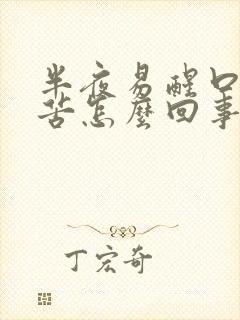 半夜易醒口
苦怎麼回事
丁宏奇